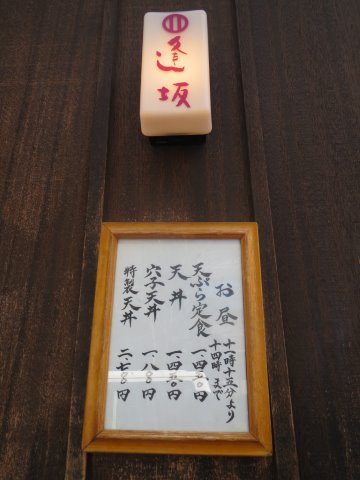 逢坂
お昼 十一時十五分より
十四時まで
天ぷら定食 一.四五〇円
天丼 一.四五〇円
穴子天丼 一.八〇〇円
特製天丼 二.七〇〇円